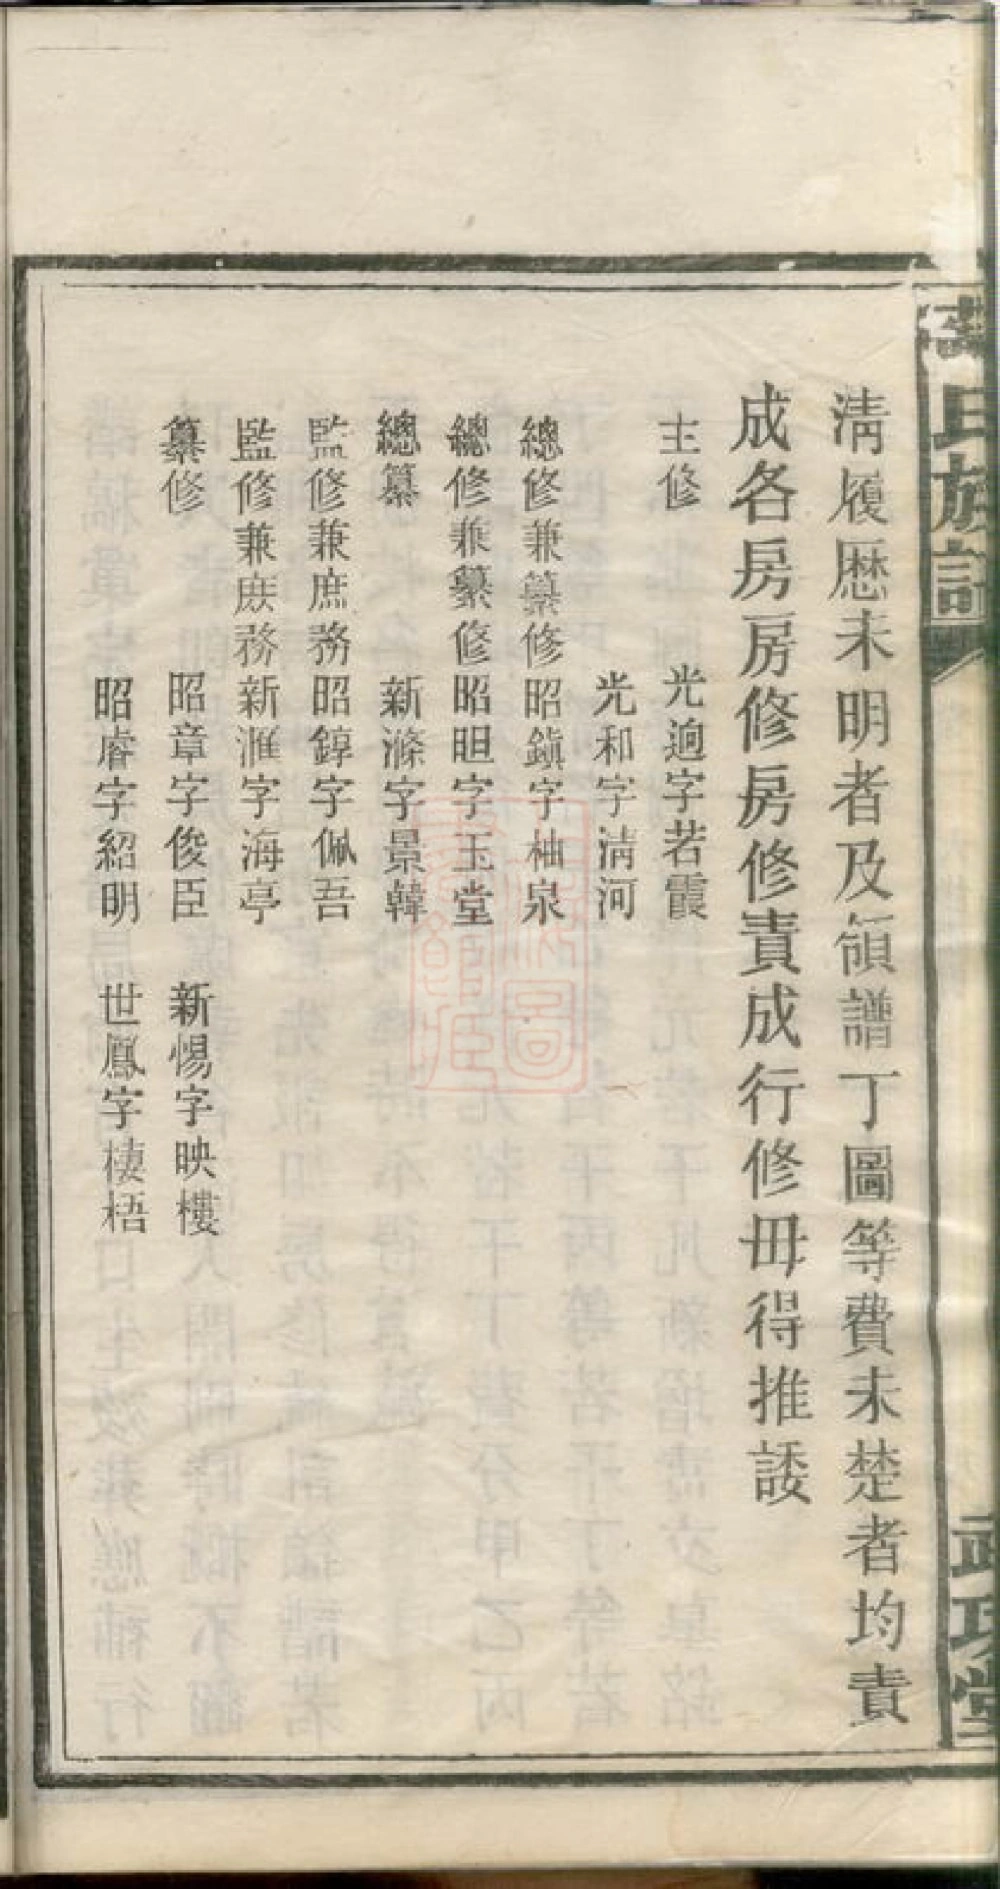 氏族譜
武功堂
清履歷未明者及領譜丁圖等費未楚者均責
成各房房修房修責成行修毌得推諉
主修 光迥字若霞
光和字清河
總修兼纂修昭鎮字柚泉
總修兼纂修昭昍字玉堂
總纂 新滌字景韓
監修兼庶務昭錞字佩吾
監修兼庶務新滙字海亭
纂修 昭章字俊臣 新惕字映樓
昭睿字紹明 世鳳字棲梧